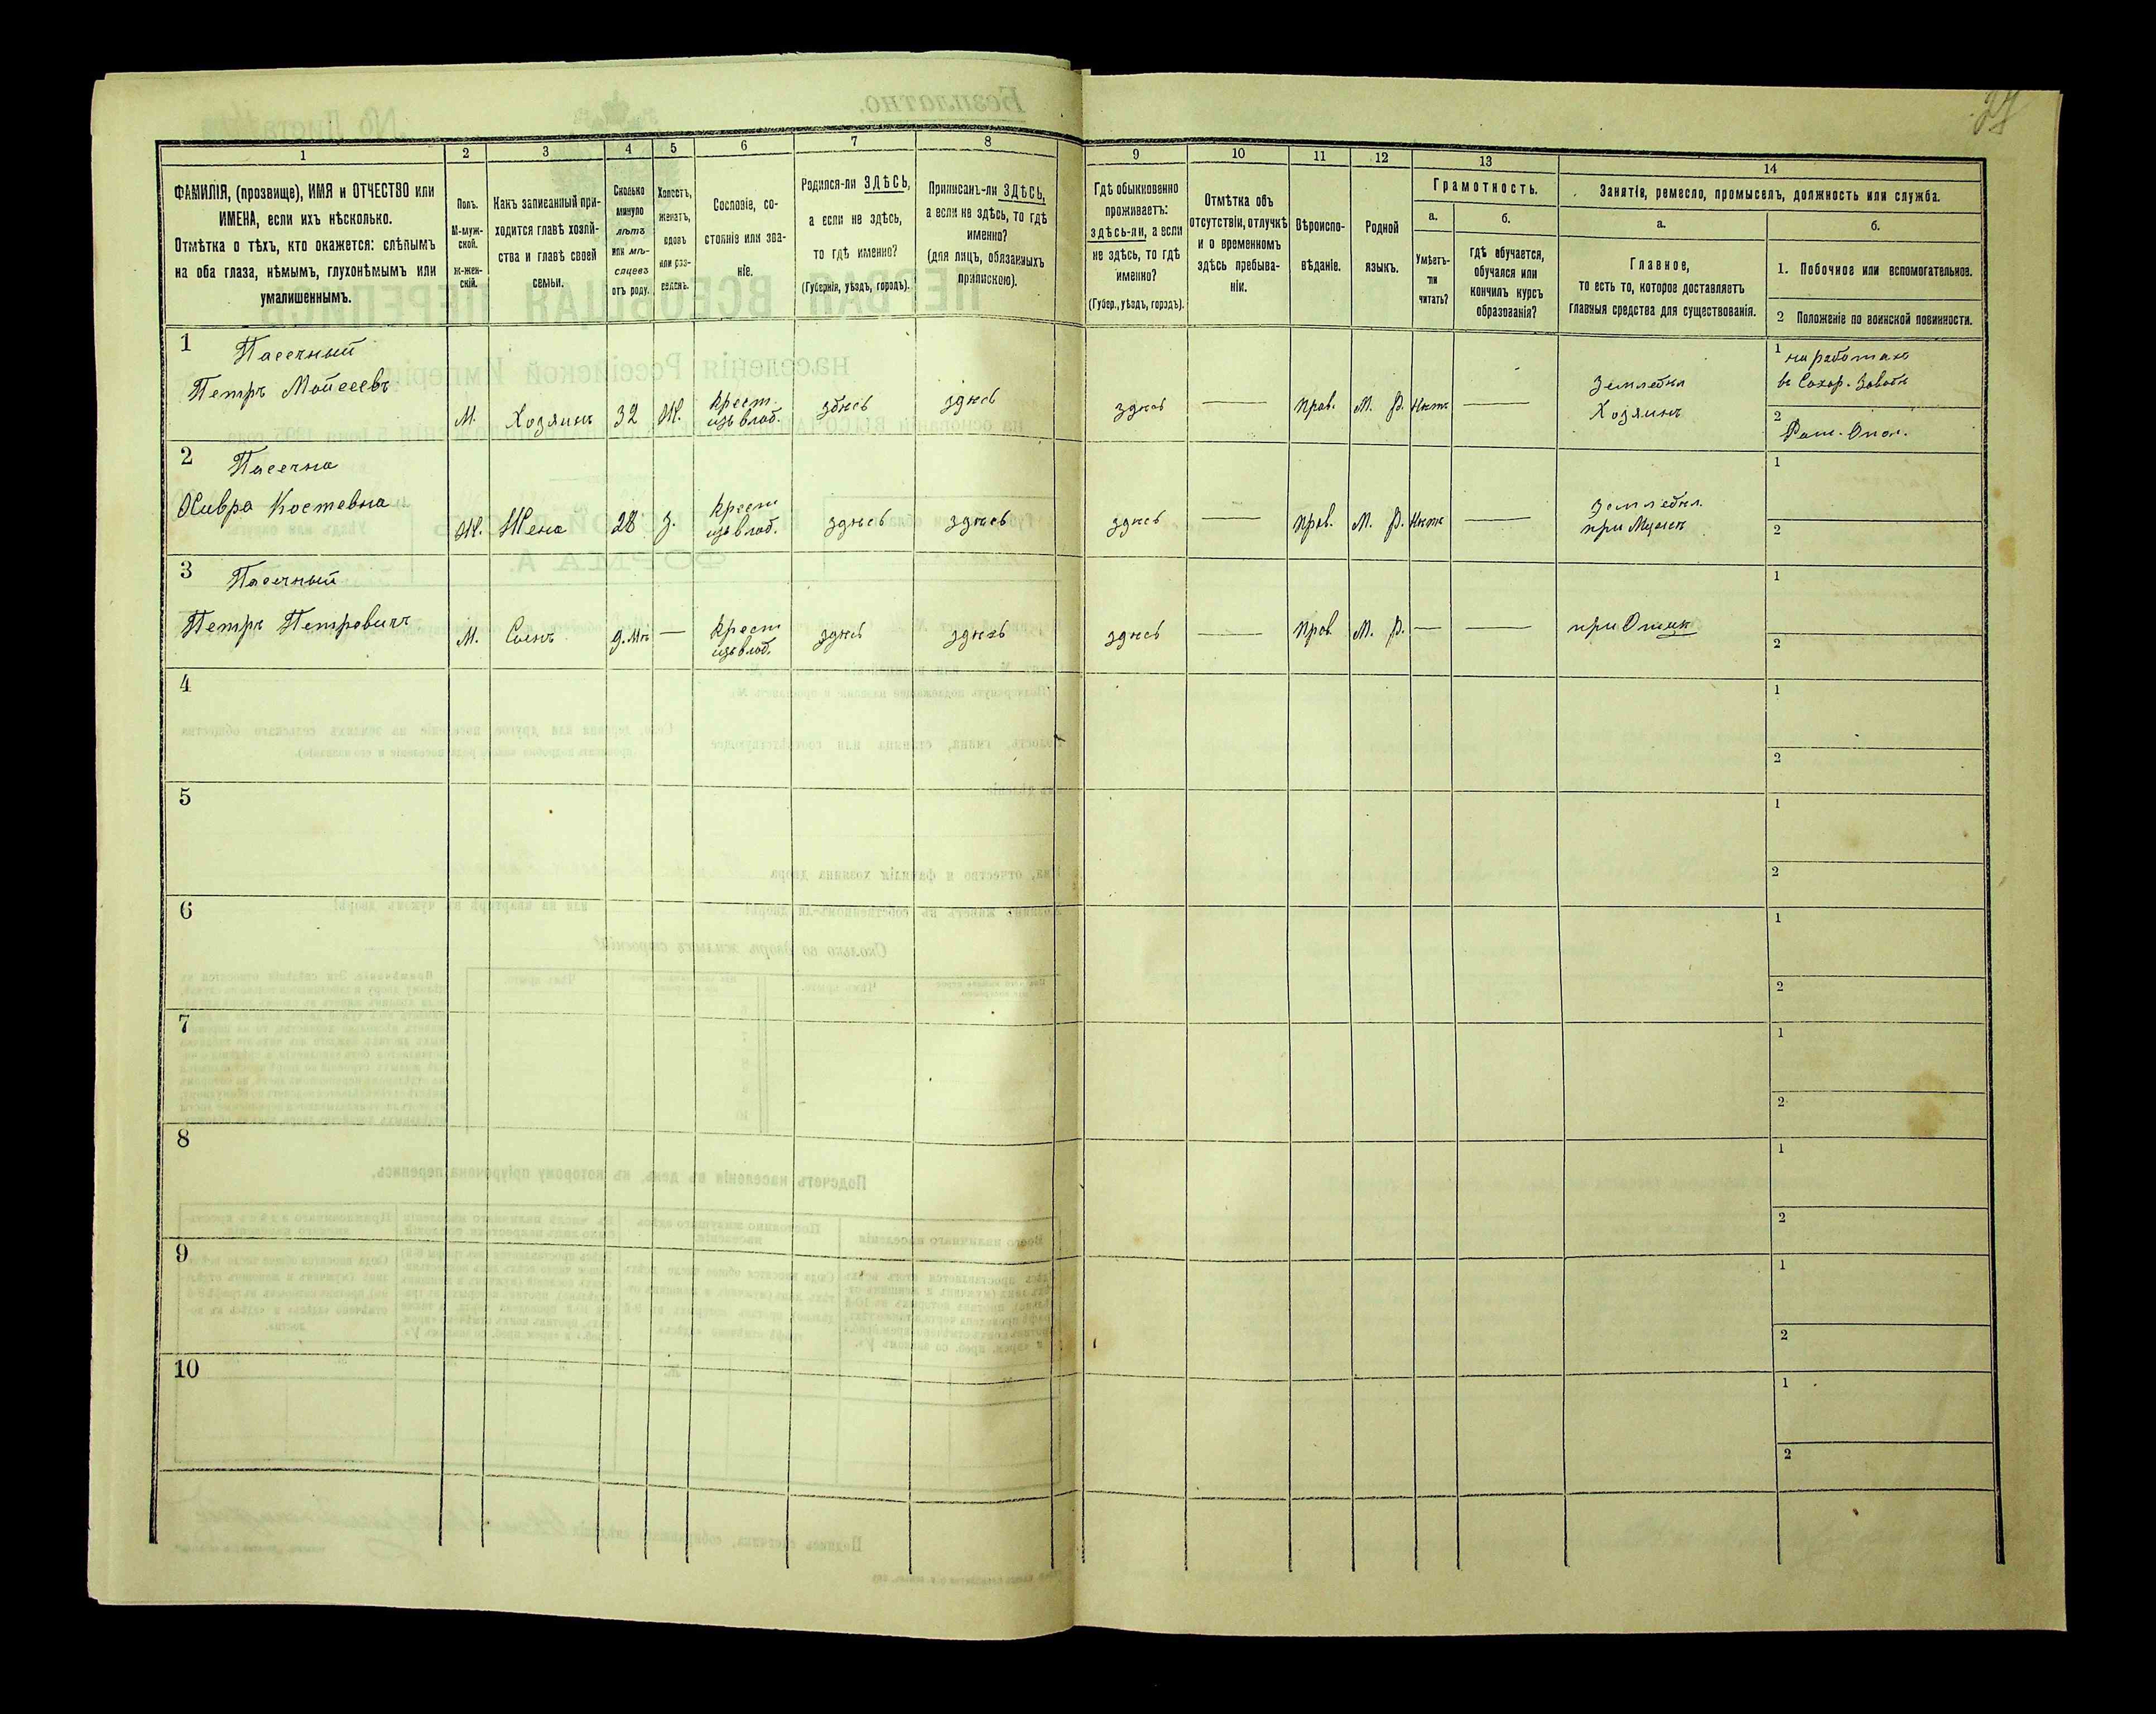 27
1
2
3
4
5
6
7
8
9
10
11
12
13
14
ФАМИЛІЯ, (прозвище), ИМЯ и ОТЧЕСТВО или
ИМЕНА, если ихъ нѣсколько.
Отмѣтка о тѣхъ, кто окажется: слѣпымъ
на оба глаза, нѣмымъ, глухонѣмымъ или
умалишеннымъ.
Полъ.
М-муж-
ской.
Ж-жен-
скій.
Какъ записанный при-
ходится главѣ хозяй-
ства и главѣ своей
семьи.
Сколько
минуло
лѣтъ
или мѣ-
сяцевъ
отъ роду.
Холостъ,
женатъ,
вдовъ
или раз-
веденъ.
Сословіе, со-
стояніе или зва-
ніе.
Родился-ли ЗДѢСЬ,
а если не здѣсь,
то гдѣ именно?
(Губернія, уѣздъ, городъ).
Приписанъ-ли ЗДѢСЬ,
а если не здѣсь, то гдѣ
именно?
(для лицъ, обязанныхъ
припискою).
Гдѣ обыкновенно
проживаетъ:
здѣсь-ли, а если
не здѣсь, то гдѣ
именно?
(Губер., уѣздъ, городъ).
Отмѣтка объ
отсутствіи, отлучкѣ
и о временномъ
здѣсь пребыва-
ніи.
Вѣроиспо-
вѣданіе.
Родной
языкъ.
Грамотность.
а.
б.
Умѣетъ-
ли
читать?
гдѣ обучается,
обучался или
кончилъ курсъ
образованія?
Занятіе, ремесло, промыселъ, должность или служба.
а.
б.
Главное,
то есть то, которое доставляетъ
главныя средства для существованія.
1. Побочное или вспомогательное.
2 Положеніе по воинской повинности.
1
Пасечный
Петръ Мойсеевъ
М.
Хозяинъ
32
Ж.
Крест.
изъ влад.
здѣсь
здѣсь
здѣсь
—
прав.
М. Р.
Нѣтъ
—
Земледѣл
Хозяинъ
1 на работахъ
въ Сахор. Заводѣ
2
2
Пасечна
Хивря Костевна
Ж.
Жена
28
З.
Крест
изъ влад.
здѣсь
здѣсь
здѣсь
—
прав.
М. Р.
Нѣтъ
—
Земледѣл.
при Мужѣ
1
2
3
Пасечный
Петръ Петровичъ
М.
Сынъ
9. Мѣ
—
Крест
изъ влад.
здѣсь
здѣсь
здѣсь
—
прав
М. Р.
—
—
при Отцѣ
1
2
4
1
2
5
1
2
6
1
2
7
1
2
8
1
2
9
1
2
10
1
2